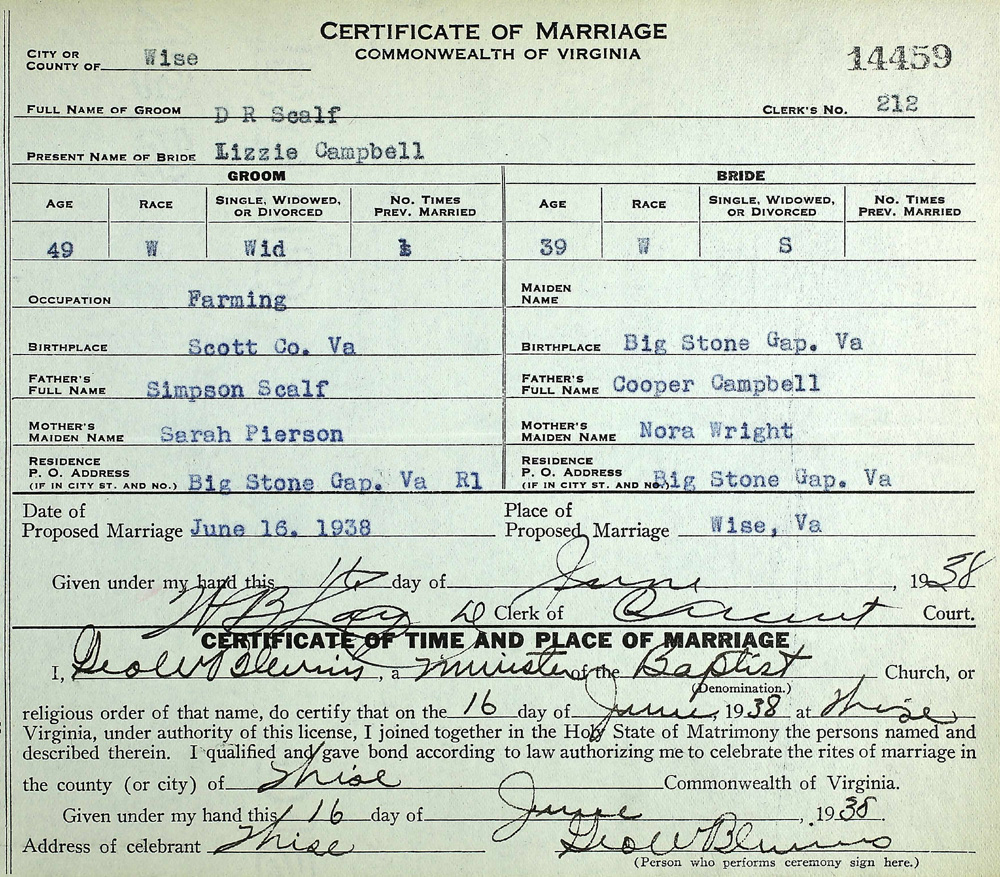 CERTIFICATE OF MARRIAGE
COMMONWEALTH OF VIRGINIA
CITY OR COUNTY OF Wise
14459
FULL NAME OF GROOM D R Scalf CLERK'S NO. 212
PRESENT NAME OF BRIDE Lizzie Campbell
GROOM BRIDE
AGE RACE SINGLE, WIDOWED, OR DIVORCED NO. TIMES PREV. MARRIED AGE RACE SINGLE, WIDOWED, OR DIVORCED NO. TIMES PREV. MARRIED
49 W Wid 1 39 W S
OCCUPATION Farming MAIDEN NAME
BIRTHPLACE Scott Co. Va BIRTHPLACE Big Stone Gap. Va
FATHER'S FULL NAME Simpson Scalf FATHER'S FULL NAME Cooper Campbell
MOTHER'S MAIDEN NAME Sarah Pierson MOTHER'S MAIDEN NAME Nora Wright
RESIDENCE P. O. ADDRESS (IF IN CITY ST. AND NO.) Big Stone Gap. Va R1 RESIDENCE P. O. ADDRESS (IF IN CITY ST. AND NO.) Big Stone Gap. Va
Date of Proposed Marriage June 16. 1938 Place of Proposed Marriage Wise, Va
Given under my hand this 16 day of June, 1938
Clerk of Circuit Court.
CERTIFICATE OF TIME AND PLACE OF MARRIAGE
I, Geo W Blevins, a Minister of the Baptist Church, or
(Denomination.)
religious order of that name, do certify that on the 16 day of June, 1938 at Wise
Virginia, under authority of this license, I joined together in the Holy State of Matrimony the persons named and
described therein. I qualified and gave bond according to law authorizing me to celebrate the rites of marriage in
the county (or city) of Wise Commonwealth of Virginia.
Given under my hand this 16 day of June, 1938.
Address of celebrant Wise Geo W Blevins
(Person who performs ceremony sign here.)